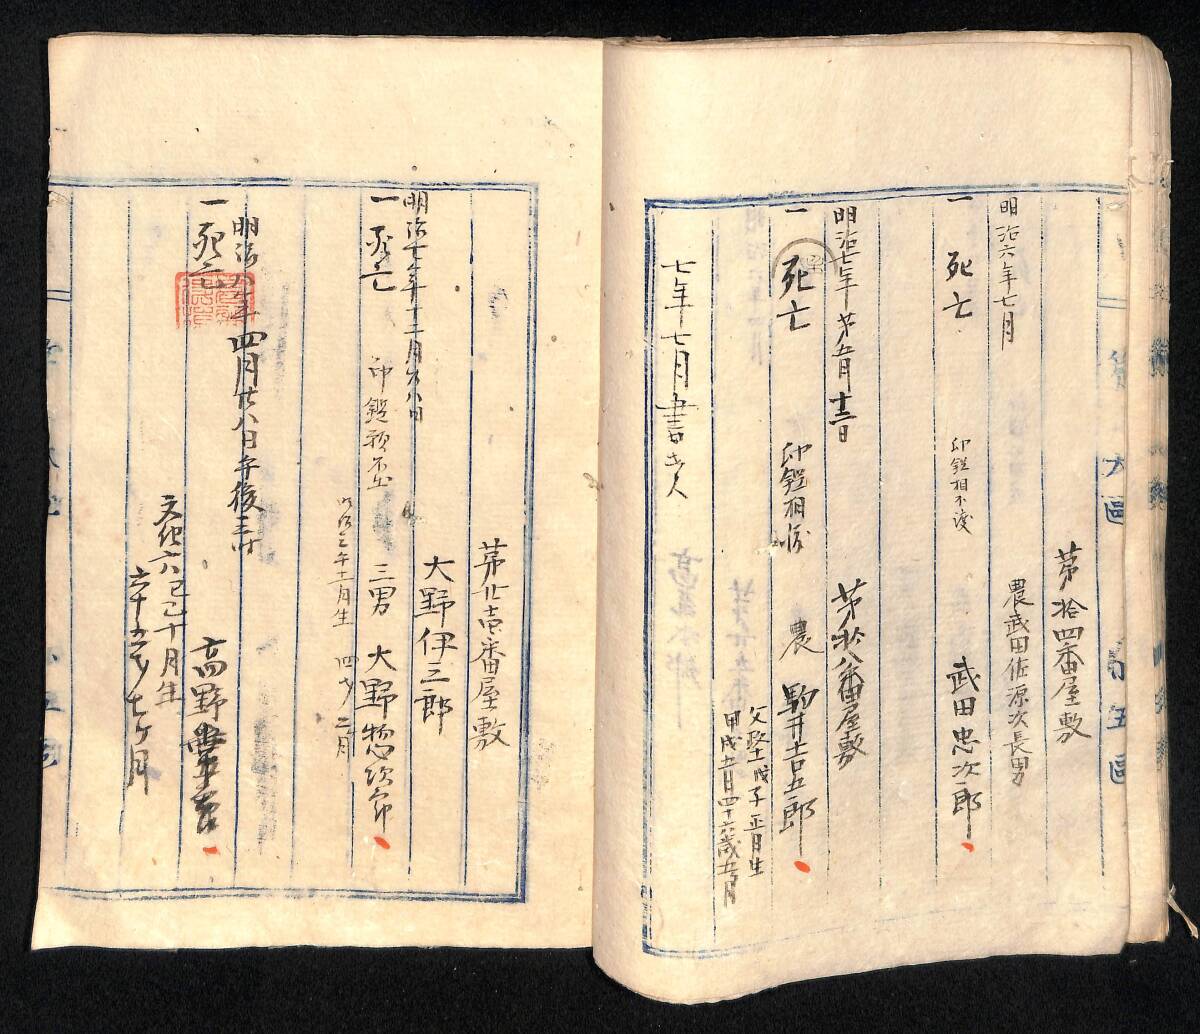 第拾四番屋敷
農武田佐源次長男
明治六年七月
一 死亡 印鑑相不渡 武田忠次郎
第拾八番屋敷
明治七年第五月十二日
一 死亡 印鑑相渡 農 駒井吉五郎
文政十一戊子正月生
甲戌五月四十六歳五ヶ月
七年七月書出ス
第廿壱番屋敷
大野伊三郎
明治七年十二月六日
一 死亡 印鑑 三男 大野惣次郎
明治三年十一月生 四才二月
明治八年四月廿八日午後三時
一 死亡 高野
文化六己巳十月生
六十五才七ヶ月